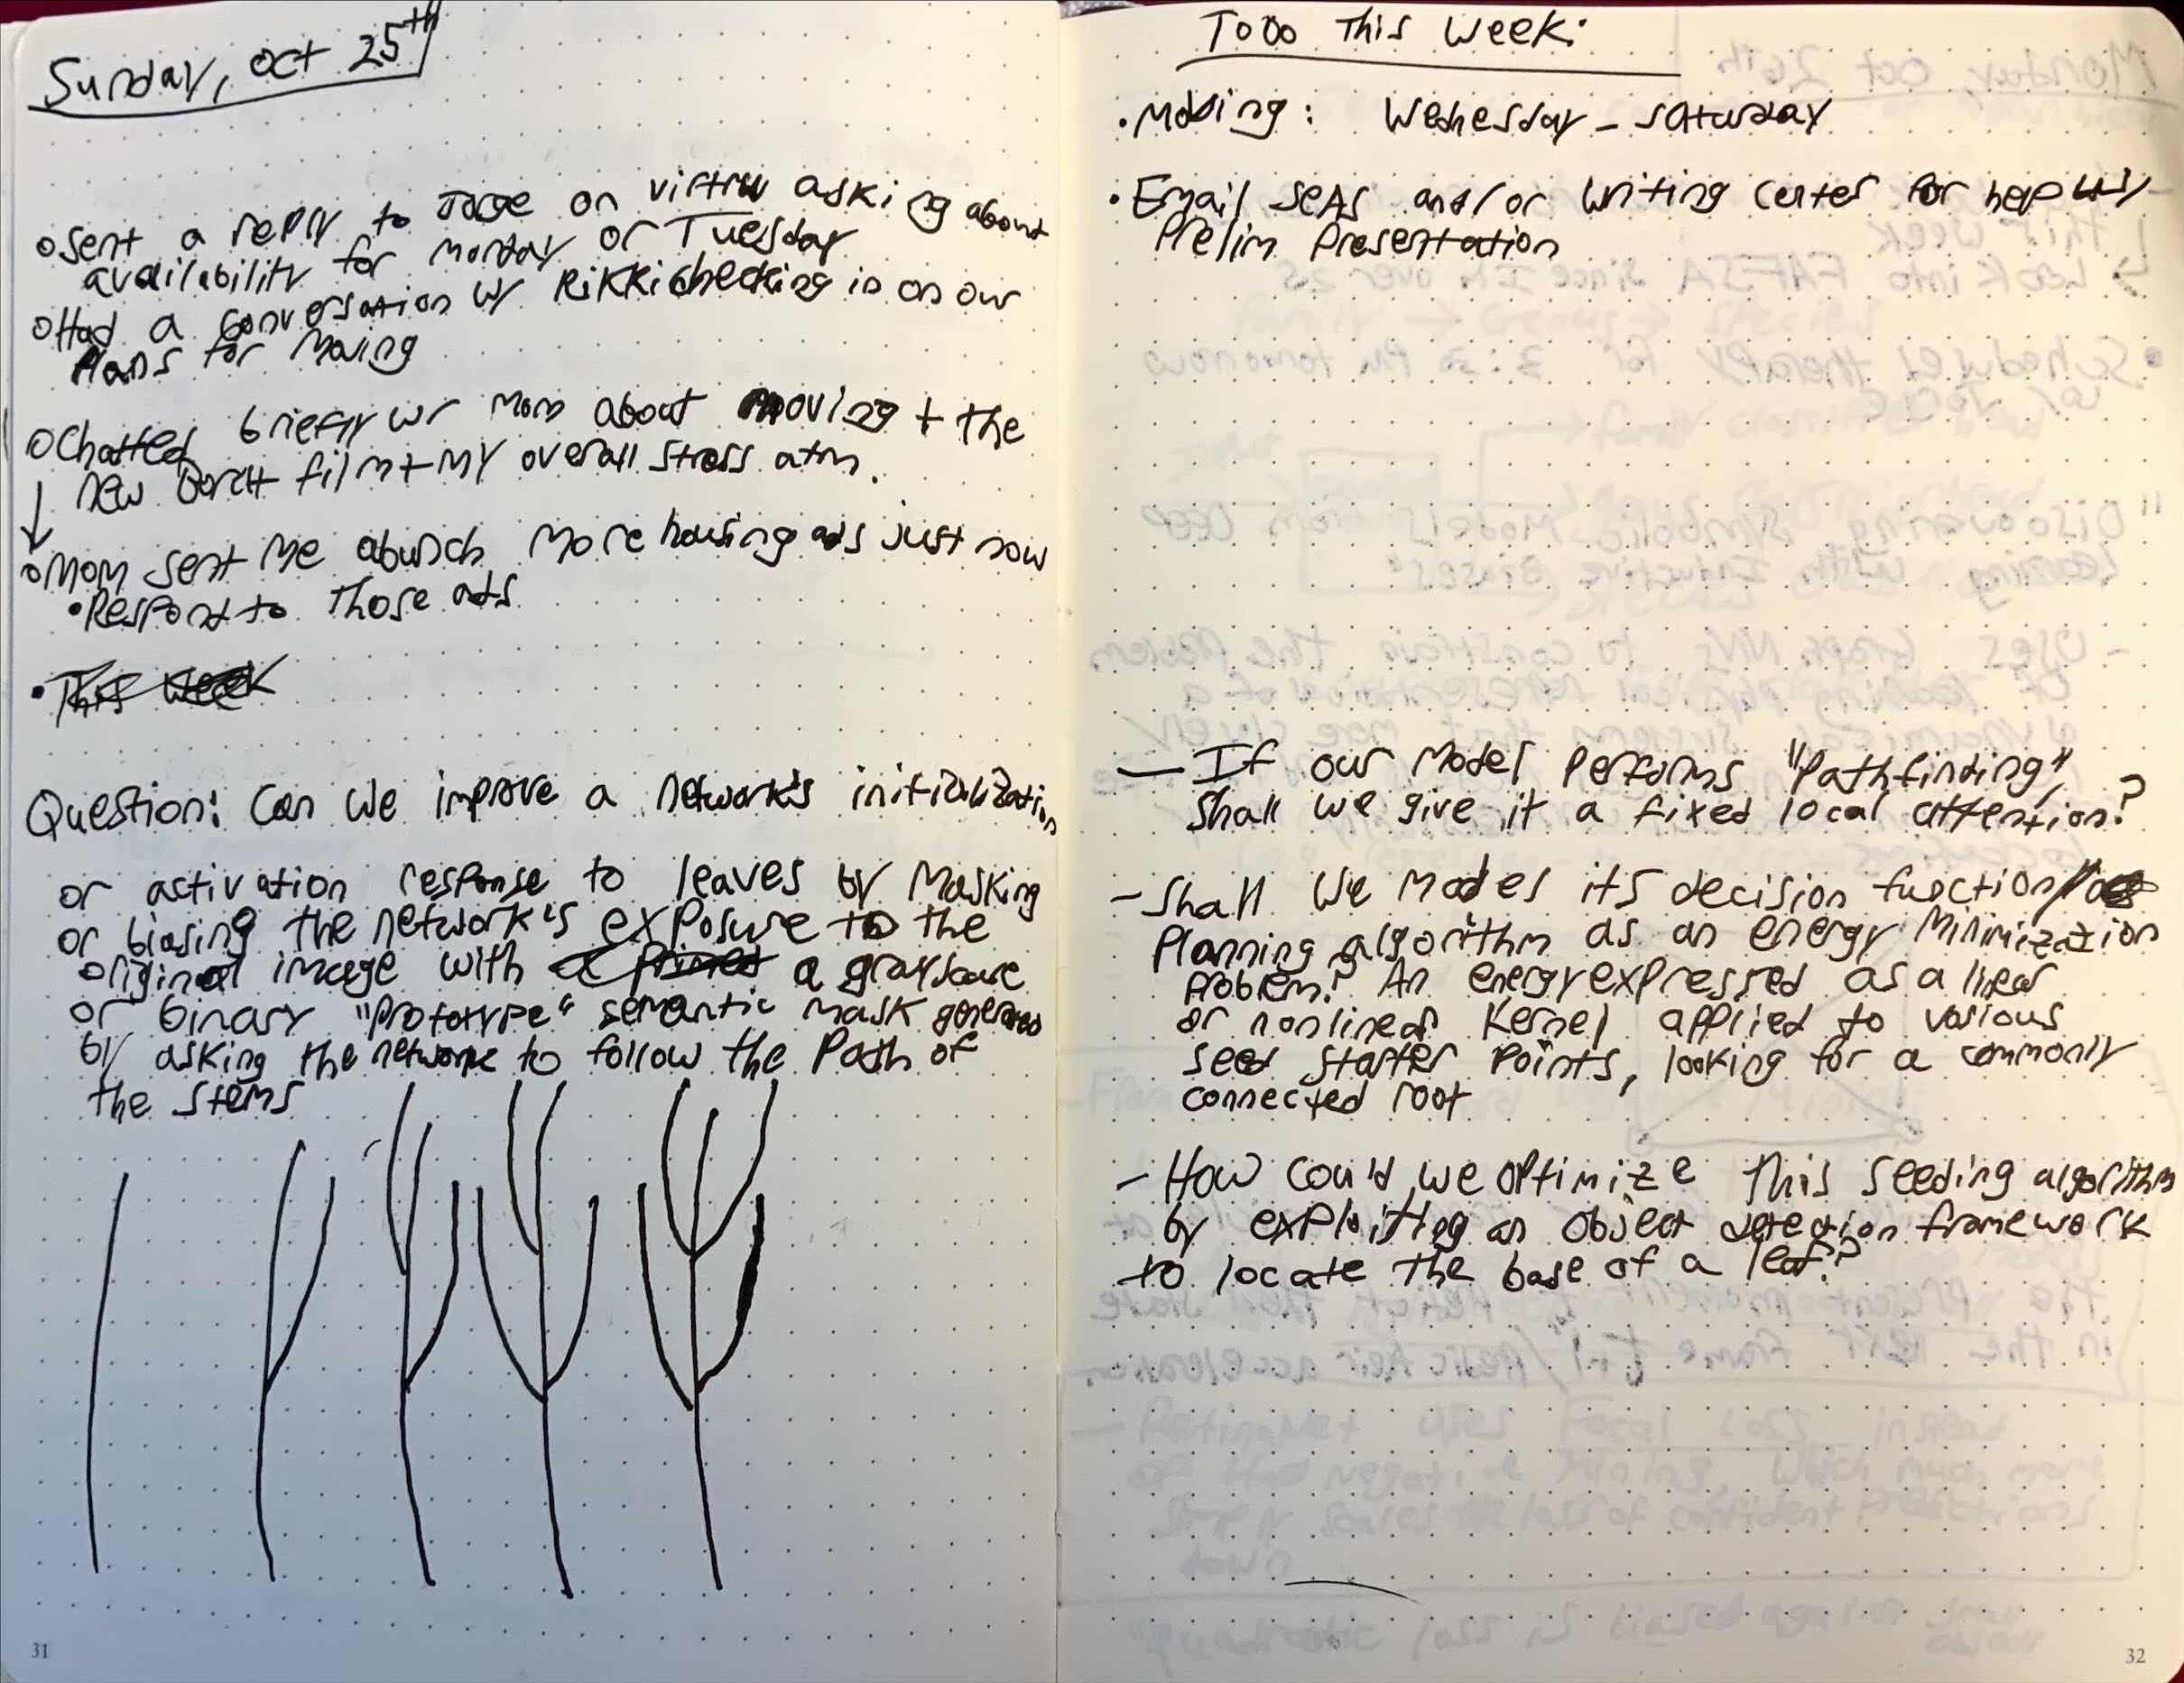 Sunday, Oct 25th
o Sent a reply to on virtru asking about
availability for Monday or Tuesday
o Had a conversation w/ Rikki checking in on our
plans for moving
o Chatted briefly w/ Mom about moving + the
new film + my overall stress atm.
↓
o Mom sent me a bunch more housing ads just now
• Respond to those ads
• This week
Question: Can we improve a network's initialization
or activation response to leaves by Masking
or biasing the network's exposure to the
original image with a a grayscale
or binary "Prototype" semantic mask generated
by asking the network to follow the Path of
the stems
31
TODO This Week:
• Moving: Wednesday - Saturday
• Email SEAS and/or Writing Center for help w/
Prelim Presentation
— If our Model Performs "Pathfinding",
Shall we give it a fixed local attention?
- Shall We Model its decision function/
Planning algorithm as an energy Minimization
problem? An energy expressed as a linear
or nonlinear Kernel applied to various
seed starter points, looking for a commonly
connected root
- How could we optimize this seeding algorithm
by exploiting an object detection framework
to locate the base of a leaf?
32